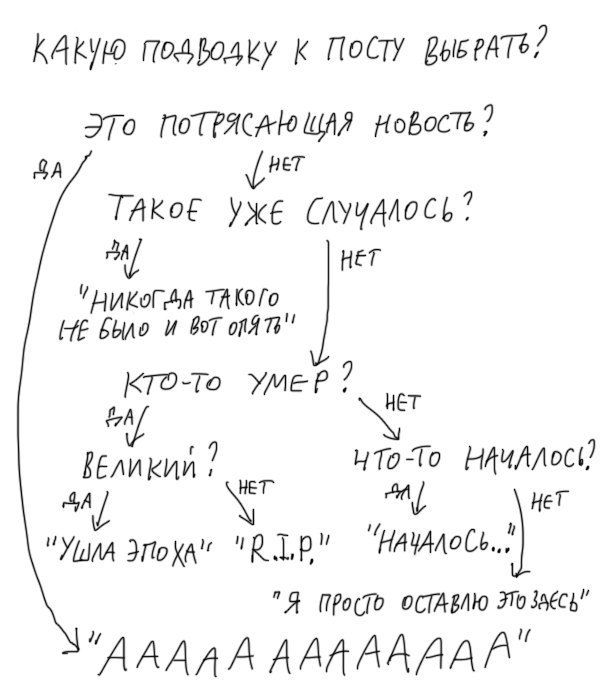 КАКУЮ ПОДВОДКУ К ПОСТУ ВЫБРАТЬ?
ЭТО ПОТРЯСАЮЩАЯ НОВОСТЬ?
ДА
НЕТ
ТАКОЕ УЖЕ СЛУЧАЛОСЬ?
ДА
НЕТ
"НИКОГДА ТАКОГО
НЕ БЫЛО И ВОТ ОПЯТЬ"
КТО-ТО УМЕР?
ДА
НЕТ
ВЕЛИКИЙ?
ЧТО-ТО НАЧАЛОСЬ?
ДА
НЕТ
ДА
НЕТ
"УШЛА ЭПОХА"
"R.I.P."
"НАЧАЛОСЬ..."
"Я ПРОСТО ОСТАВЛЮ ЭТО ЗДЕСЬ"
"ААААА АААААААА"